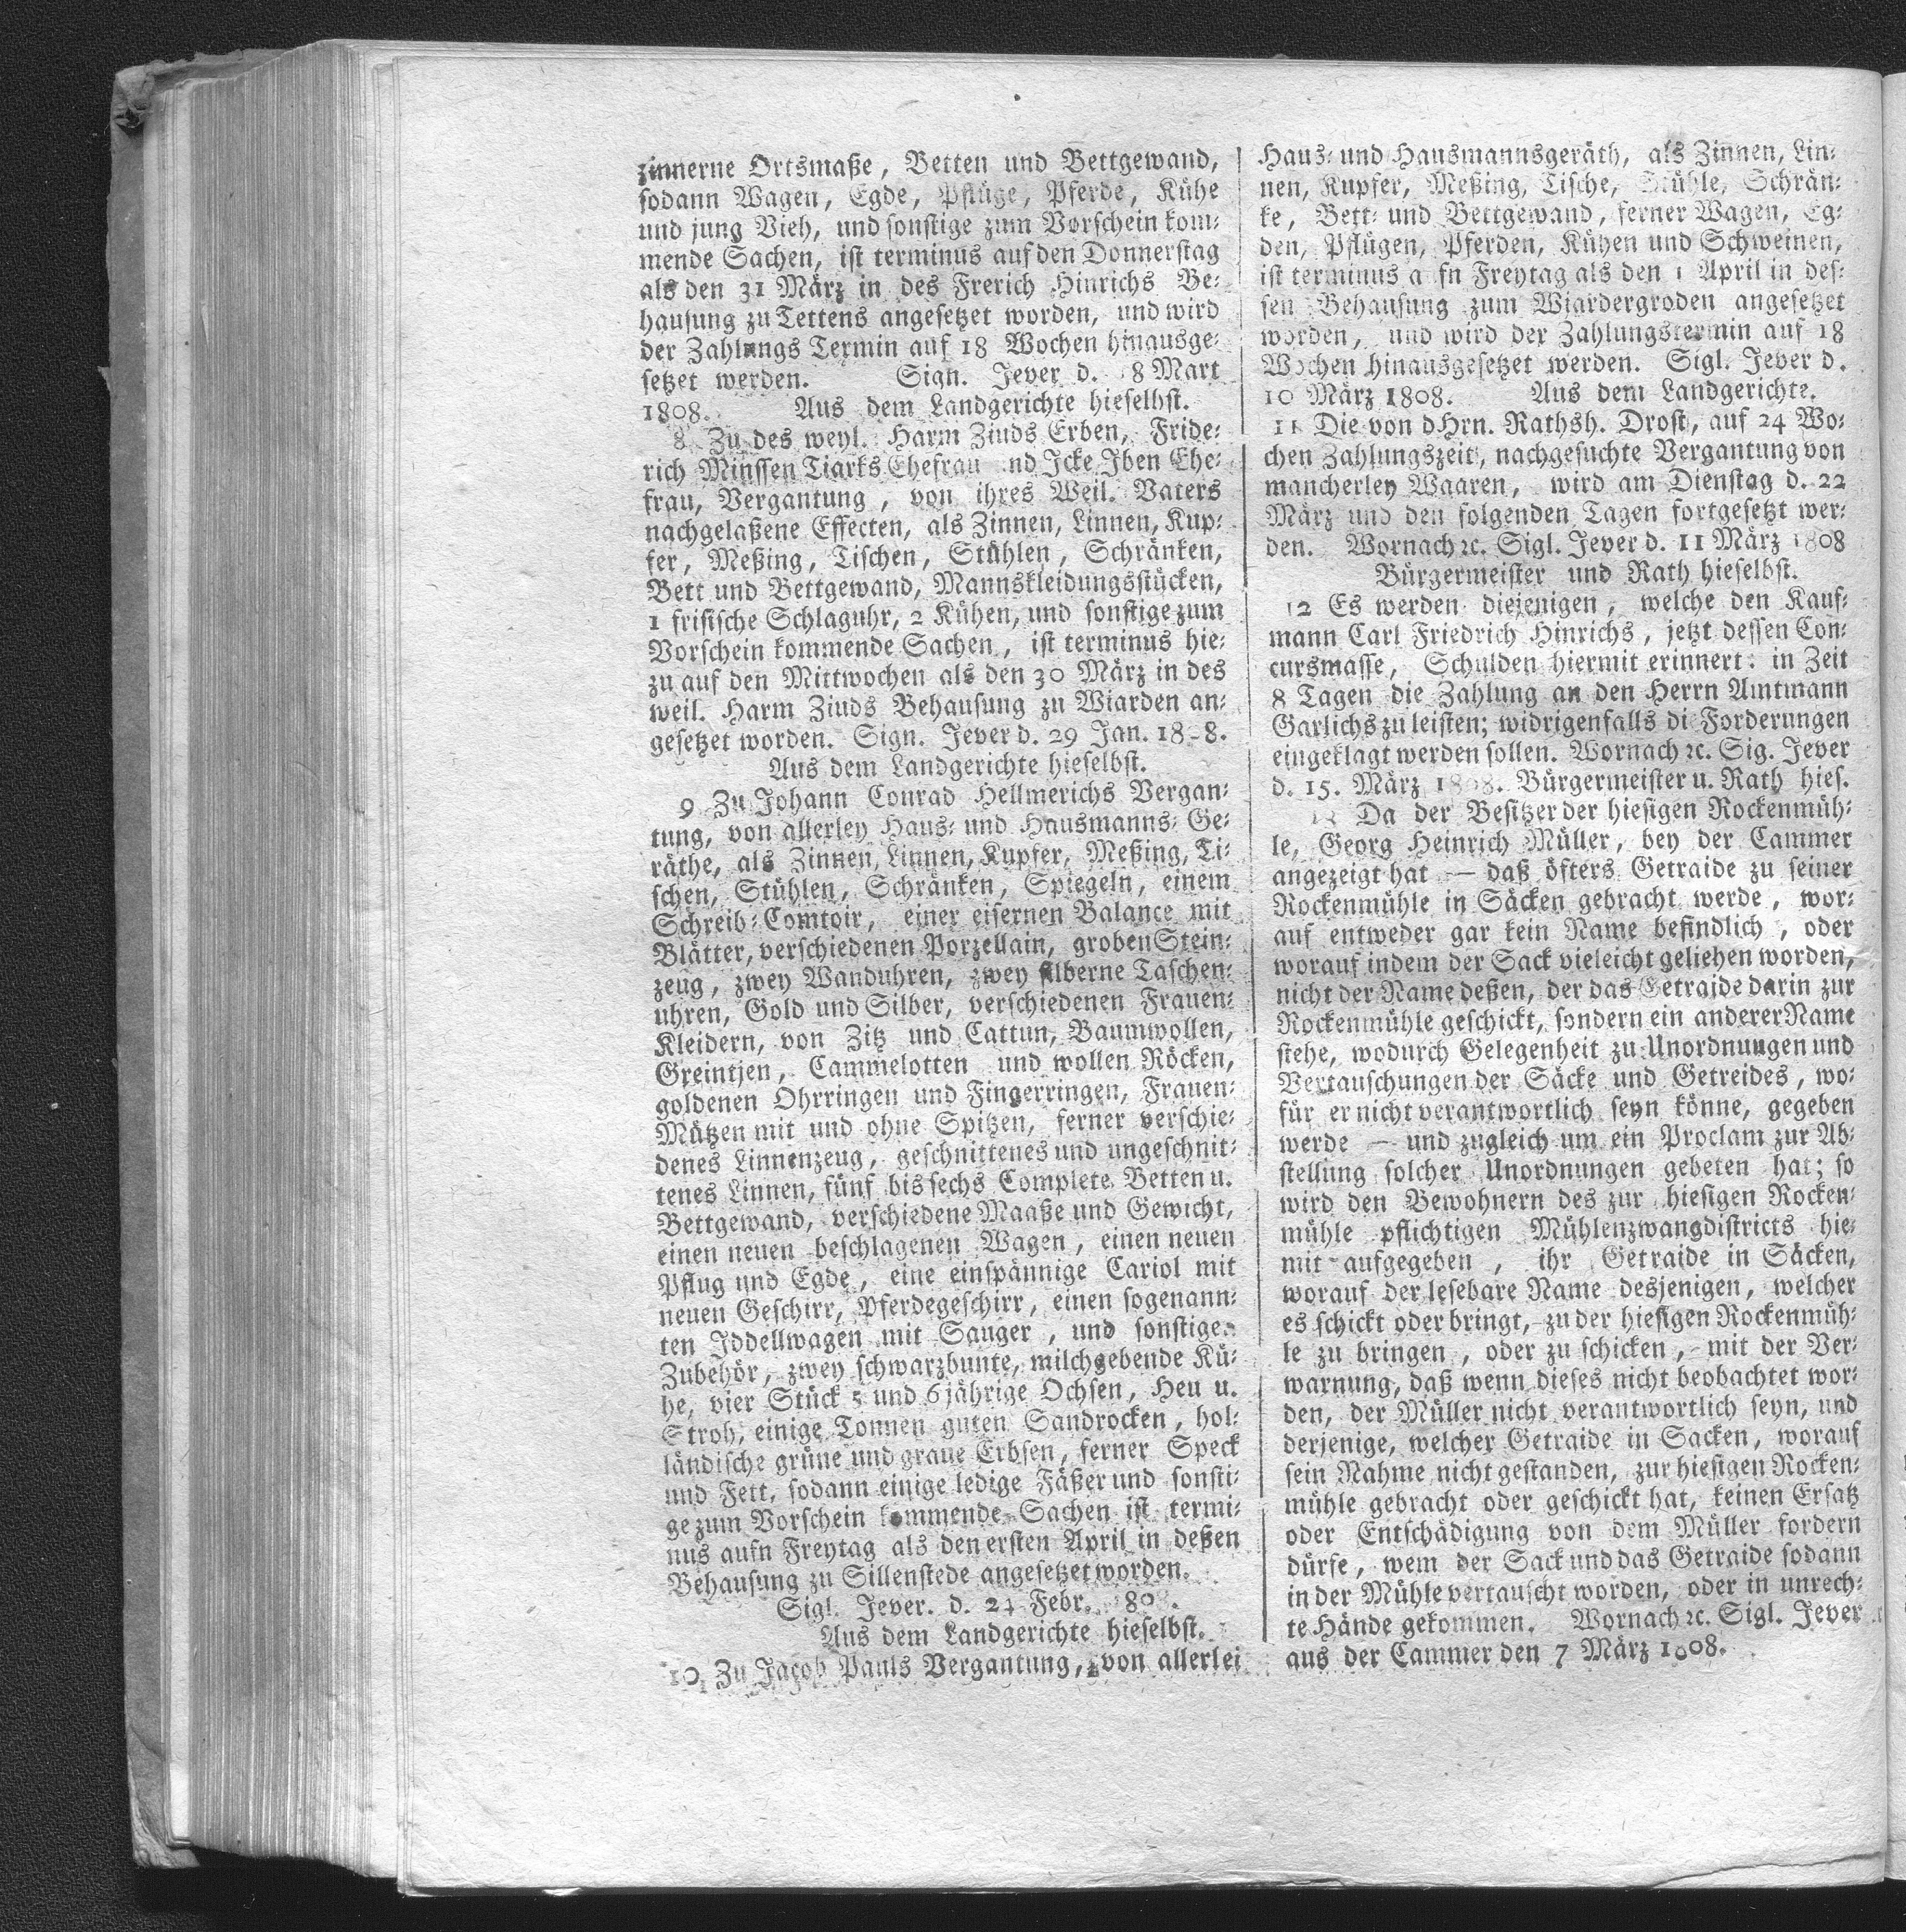 zinnerne Ortsmaße, Betten und Bettgewand,
sodann Wagen, Egde, Pflüge, Pferde, Kühe
und jung Vieh, und sonstige zum Vorschein kom-
mende Sachen, ist terminus auf den Donnerstag
als den 31 März in des Frerich Hinrichs Be-
hausung zu Tettens angesetzet worden, und wird
der Zahlungs Termin auf 18 Wochen hinausge-
setzet werden. Sign. Jever d. 8 Mart
1808. Aus dem Landgerichte hieselbst.
8 Zu des weyl. Harm Ziuds Erben, Fride-
rich Minssen Tiarks Ehefrau nd Icke Iben Ehe-
frau, Vergantung, von ihres Weil. Vaters
nachgelaßene Effecten, als Zinnen, Linnen, Kup-
fer, Meßing, Tischen, Stühlen, Schränken,
Bett und Bettgewand, Mannskleidungsstücken,
1 frisische Schlaguhr, 2 Kühen, und sonstige zum
Vorschein kommende Sachen, ist terminus hie-
zu auf den Mittwochen als den 30 März in des
weil. Harm Ziuds Behausung zu Wiarden an-
gesetzet worden. Sign. Jever d. 29 Jan. 18-8.
Aus dem Landgerichte hieselbst.
9 Zu Johann Conrad Hellmerichs Vergan-
tung, von allerley Haus- und Hausmanns-Ge-
räthe, als Zinnen, Linnen, Kupfer, Meßing, Ti-
schen, Stühlen, Schränken, Spiegeln, einem
Schreib-Comtoir, einer eisernen Balance mit
Blätter, verschiedenen Porzellain, groben Stein-
zeug, zwey Wanduhren, zwey silberne Taschen-
uhren, Gold und Silber, verschiedenen Frauen-
Kleidern, von Zitz und Cattun, Baumwollen,
Greintjen, Cammelotten und wollen Röcken,
goldenen Ohrringen und Fingerringen, Frauen-
Mützen mit und ohne Spitzen, ferner verschie-
denes Linnenzeug, geschnittenes und ungeschnit-
tenes Linnen, fünf bis sechs Complete Betten u.
Bettgewand, verschiedene Maaße und Gewicht,
einen neuen beschlagenen Wagen, einen neuen
Pflug und Egde, eine einspännige Cariol mit
neuen Geschirr, Pferdegeschirr, einen sogenann-
ten Iddellwagen mit Sauger, und sonstigen
Zubehör, zwey schwarzbunte, milchgebende Kü-
he, vier Stück 5 und 6jährige Ochsen, Heu u.
Stroh, einige Tonnen guten Sandrocken, hol-
ländische grüne und graue Erbsen, ferner Speck
und Fett, sodann einige ledige Fäßer und sonsti-
ge zum Vorschein kommende Sachen ist termi-
nus aufn Freytag als den ersten April in deßen
Behausung zu Sillenstede angesetzet worden.
Sigl. Jever. d. Febr.
Aus dem Landgerichte hieselbst.
10, Zu Jacob Pauls Vergantung, von allerlei
Haus- und Hausmannsgeräth, als Zinnen, Lin-
nen, Kupfer, Meßing, Tische, Stühle, Schrän-
ke, Bett- und Bettgewand, ferner Wagen, Eg-
den, Pflügen, Pferden, Kühen und Schweinen,
ist terminus a fn Freytag als den 1 April in des-
sen Behausung zum Wiardergroden angesetzet
worden, und wird der Zahlungstermin auf 18
Wochen hinausgesetzet werden. Sigl. Jever d.
10 März 1808. Aus dem Landgerichte.
11 Die von dHrn. Rathsh. Drost, auf 24 Wo-
chen Zahlungszeit, nachgesuchte Vergantung von
mancherley Waaren, wird am Dienstag d. 22
März und den folgenden Tagen fortgesetzt wer-
den. Wornach ꝛc. Sigl. Jever d. 11 März 1808
Bürgermeister und Rath hieselbst.
12 Es werden diejenigen, welche den Kauf-
mann Carl Friedrich Hinrichs, jetzt dessen Con-
cursmasse, Schulden hiermit erinnert: in Zeit
8 Tagen die Zahlung an den Herrn Amtmann
Garlichs zu leisten; widrigenfalls di Forderungen
eingeklagt werden sollen. Wornach ꝛc. Sig. Jever
d. 15. März 1808. Bürgermeister u. Rath hies.
13 Da der Besitzer der hiesigen Rockenmüh-
le, Georg Heinrich Müller, bey der Cammer
angezeigt hat — daß öfters Getraide zu seiner
Rockenmühle in Säcken gebracht werde, wor-
auf entweder gar kein Name befindlich, oder
worauf indem der Sack vieleicht geliehen worden,
nicht der Name deßen, der das Getraide darin zur
Rockenmühle geschickt, sondern ein anderer Name
stehe, wodurch Gelegenheit zu Unordnungen und
Vertauschungen der Säcke und Getreides, wo-
für er nicht verantwortlich seyn könne, gegeben
werde — und zugleich um ein Proclam zur Ab-
stellung solcher Unordnungen gebeten hat; so
wird den Bewohnern des zur hiesigen Rocken-
mühle pflichtigen Mühlenzwangdistricts hie-
mit aufgegeben, ihr Getraide in Säcken,
worauf der lesebare Name desjenigen, welcher
es schickt oder bringt, zu der hiesigen Rockenmüh-
le zu bringen, oder zu schicken, mit der Ver-
warnung, daß wenn dieses nicht beobachtet wor-
den, der Müller nicht verantwortlich seyn, und
derjenige, welcher Getraide in Sacken, worauf
sein Nahme nicht gestanden, zur hiesigen Rocken-
mühle gebracht oder geschickt hat, keinen Ersatz
oder Entschädigung von dem Müller fordern
dürfe, wem der Sack und das Getraide sodann
in der Mühle vertauscht worden, oder in unrech-
te Hände gekommen. Wornach ꝛc. Sigl. Jever
aus der Cammer den 7 März 1808.